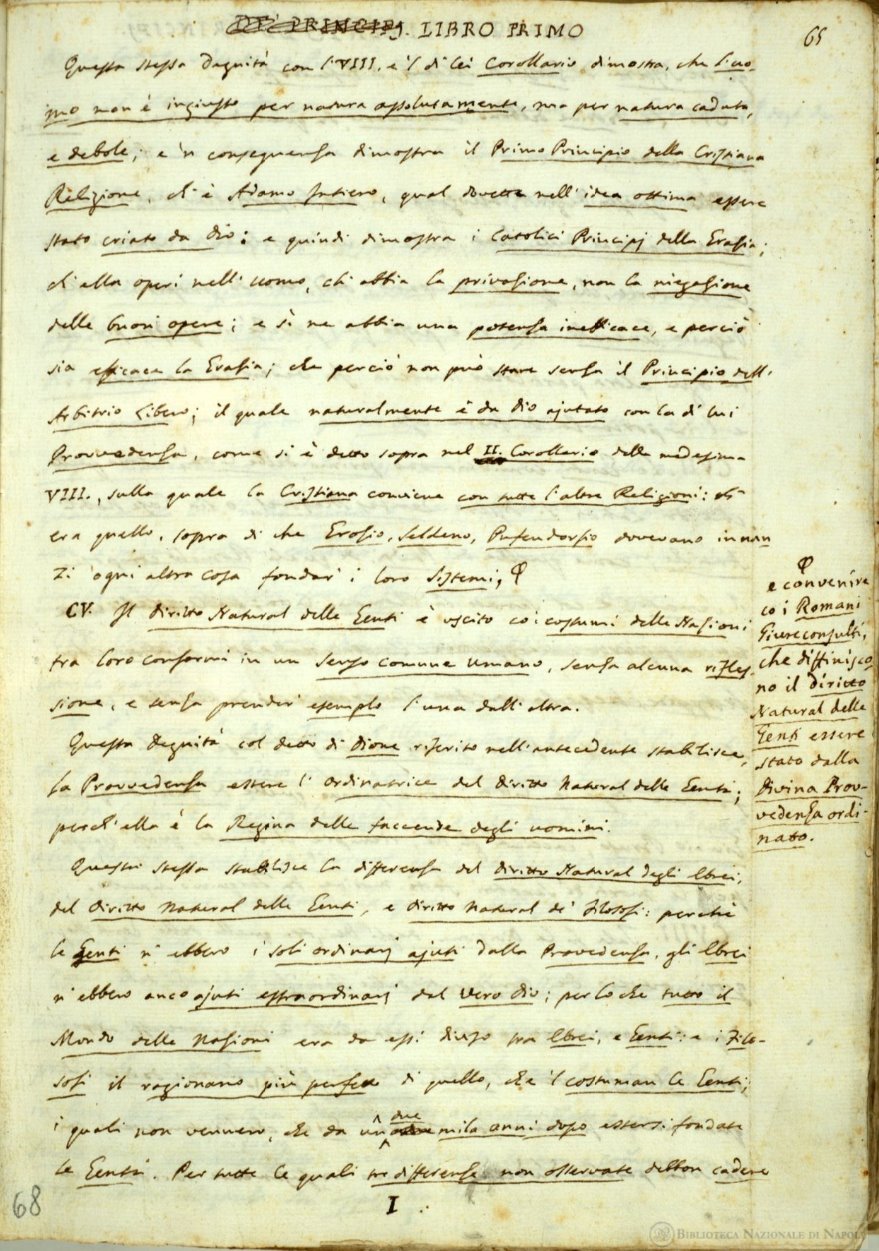 DE' PRINCIPJ. LIBRO PRIMO
65
Questa stessa Degnità con l'VIII. e 'l di lei Corollario dimostra, che l'uo-
mo non è ingiusto per natura assolutamente, ma per natura caduta,
e debole; e 'n conseguenza dimostra il Primo Principio della Cristiana
Religione, ch' è Adamo Intiero, qual dovette nell' idea ottima essere
stato criato da Dio: e quindi dimostra i Catolici Principj della Grazia;
ch' ella operi nell' uomo, ch' abbia la privazione, non la niegazione
delle buori opere; e sì ne abbia una potenza inefficace, e perciò
sia efficace la Grazia; che perciò non può stare senza il Principio dell'
Arbitrio Libero; il quale naturalmente è da Dio ajutato con la di lui
Provvedenza, come si è detto sopra nel II. Corollario della medesima
VIII., sulla quale la Cristiana conviene con tutte l'altre Religioni: ch'
era quello, sopra di che Grozio, Seldeno, Pufendorfio dovevano innan
zi ogni altra cosa fondar' i loro Sistemi,
e convenire
co i Romani
Giureconsulti,
che diffinisco
no il diritto
Natural delle
Genti essere
stato dalla
Divina Prov-
vedenza ordi-
nato.
CV. Il Diritto Natural delle Genti è uscito co i costumi delle Nazioni
tra loro conformi in un senso comune umano, senza alcuna rifles
sione, e senza prender' esemplo l'una dall'altra.
Questa Degnità col detto di Dione riferito nell'antecedente stabilisce,
la Provvedenza essere l' ordinatrice del Diritto Natural delle Genti;
perch' ella è la Regina delle faccende degli uomini.
Questa stessa stabilisce la differenza del Diritto Natural degli Ebrei,
del Diritto Natural delle Genti, e Diritto Natural de' Filosofi: perchè
le Genti n' ebbero i soli ordinarj ajuti dalla Provedenza, gli Ebrei
n' ebbero anco ajuti estraordinarj dal vero Dio; per lo che tutto il
Mondo delle Nazioni era da essi diviso tra Ebrei, e Genti: e i Filo-
sofi il ragionano più perfetto di quello, che 'l costuman le Genti;
i quali non vennero, che da un due mila anni dopo essersi fondate
le Genti. Per tutte le quali tre differenze non osservate debbon cadere
I
68
BIBLIOTECA NAZIONALE DI NAPOLI